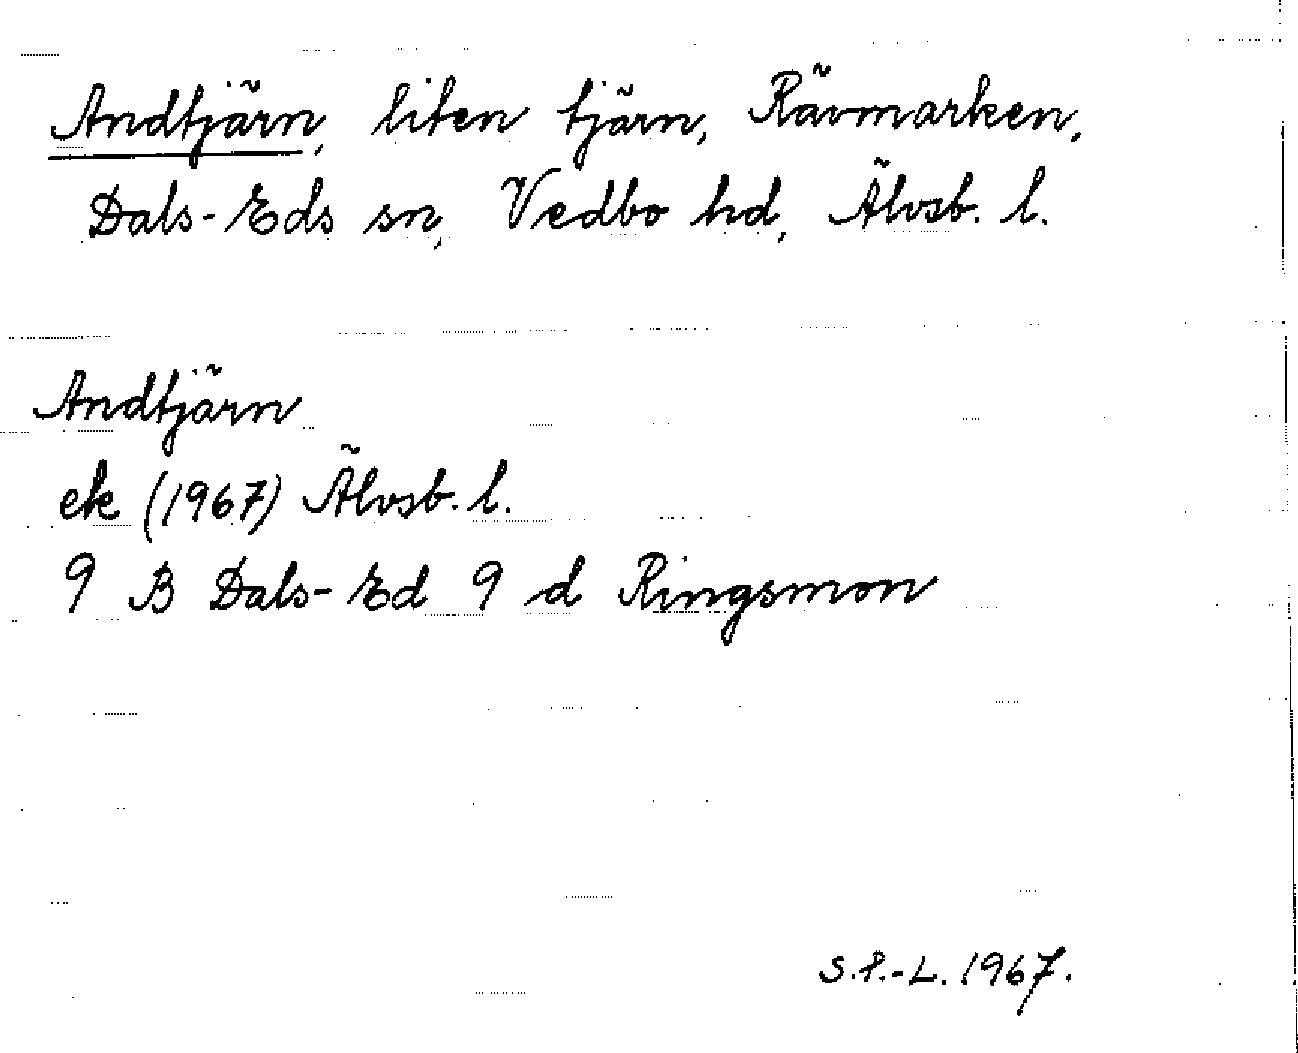 Andtjärn, liten tjärn, Rävmarken,
Dals-Eds sn, Vedbo hd, Älvsb. l.
Andtjärn
ek (1967) Älvsb. l.
9 B Dals-Ed 9 d Ringsmon
S.P.-L. 1967.